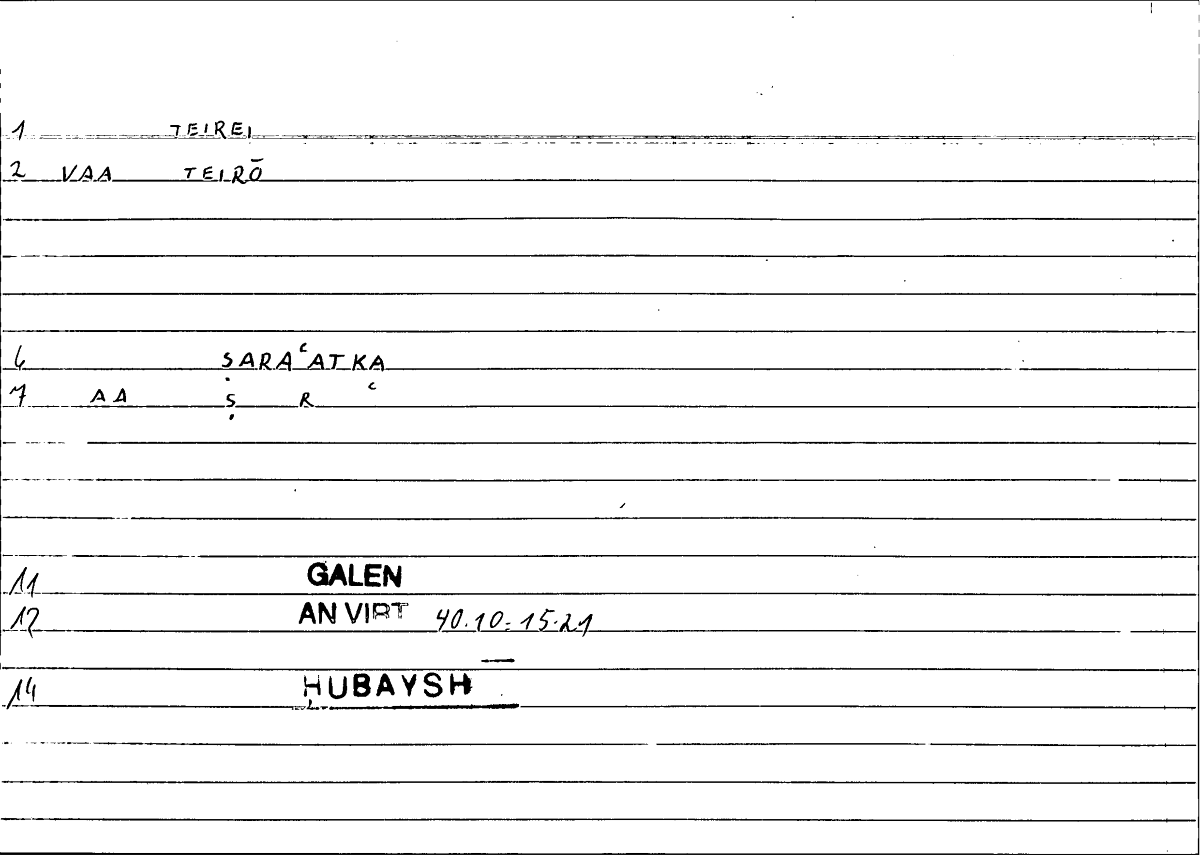 1 TEIREI
2 VAA TEIRŌ
6 ṢARAʿATKA
7 AA Ṣ R ʿ
11 GALEN
12 AN VIRT 40.10-15.21
14 ḤUBAYSH